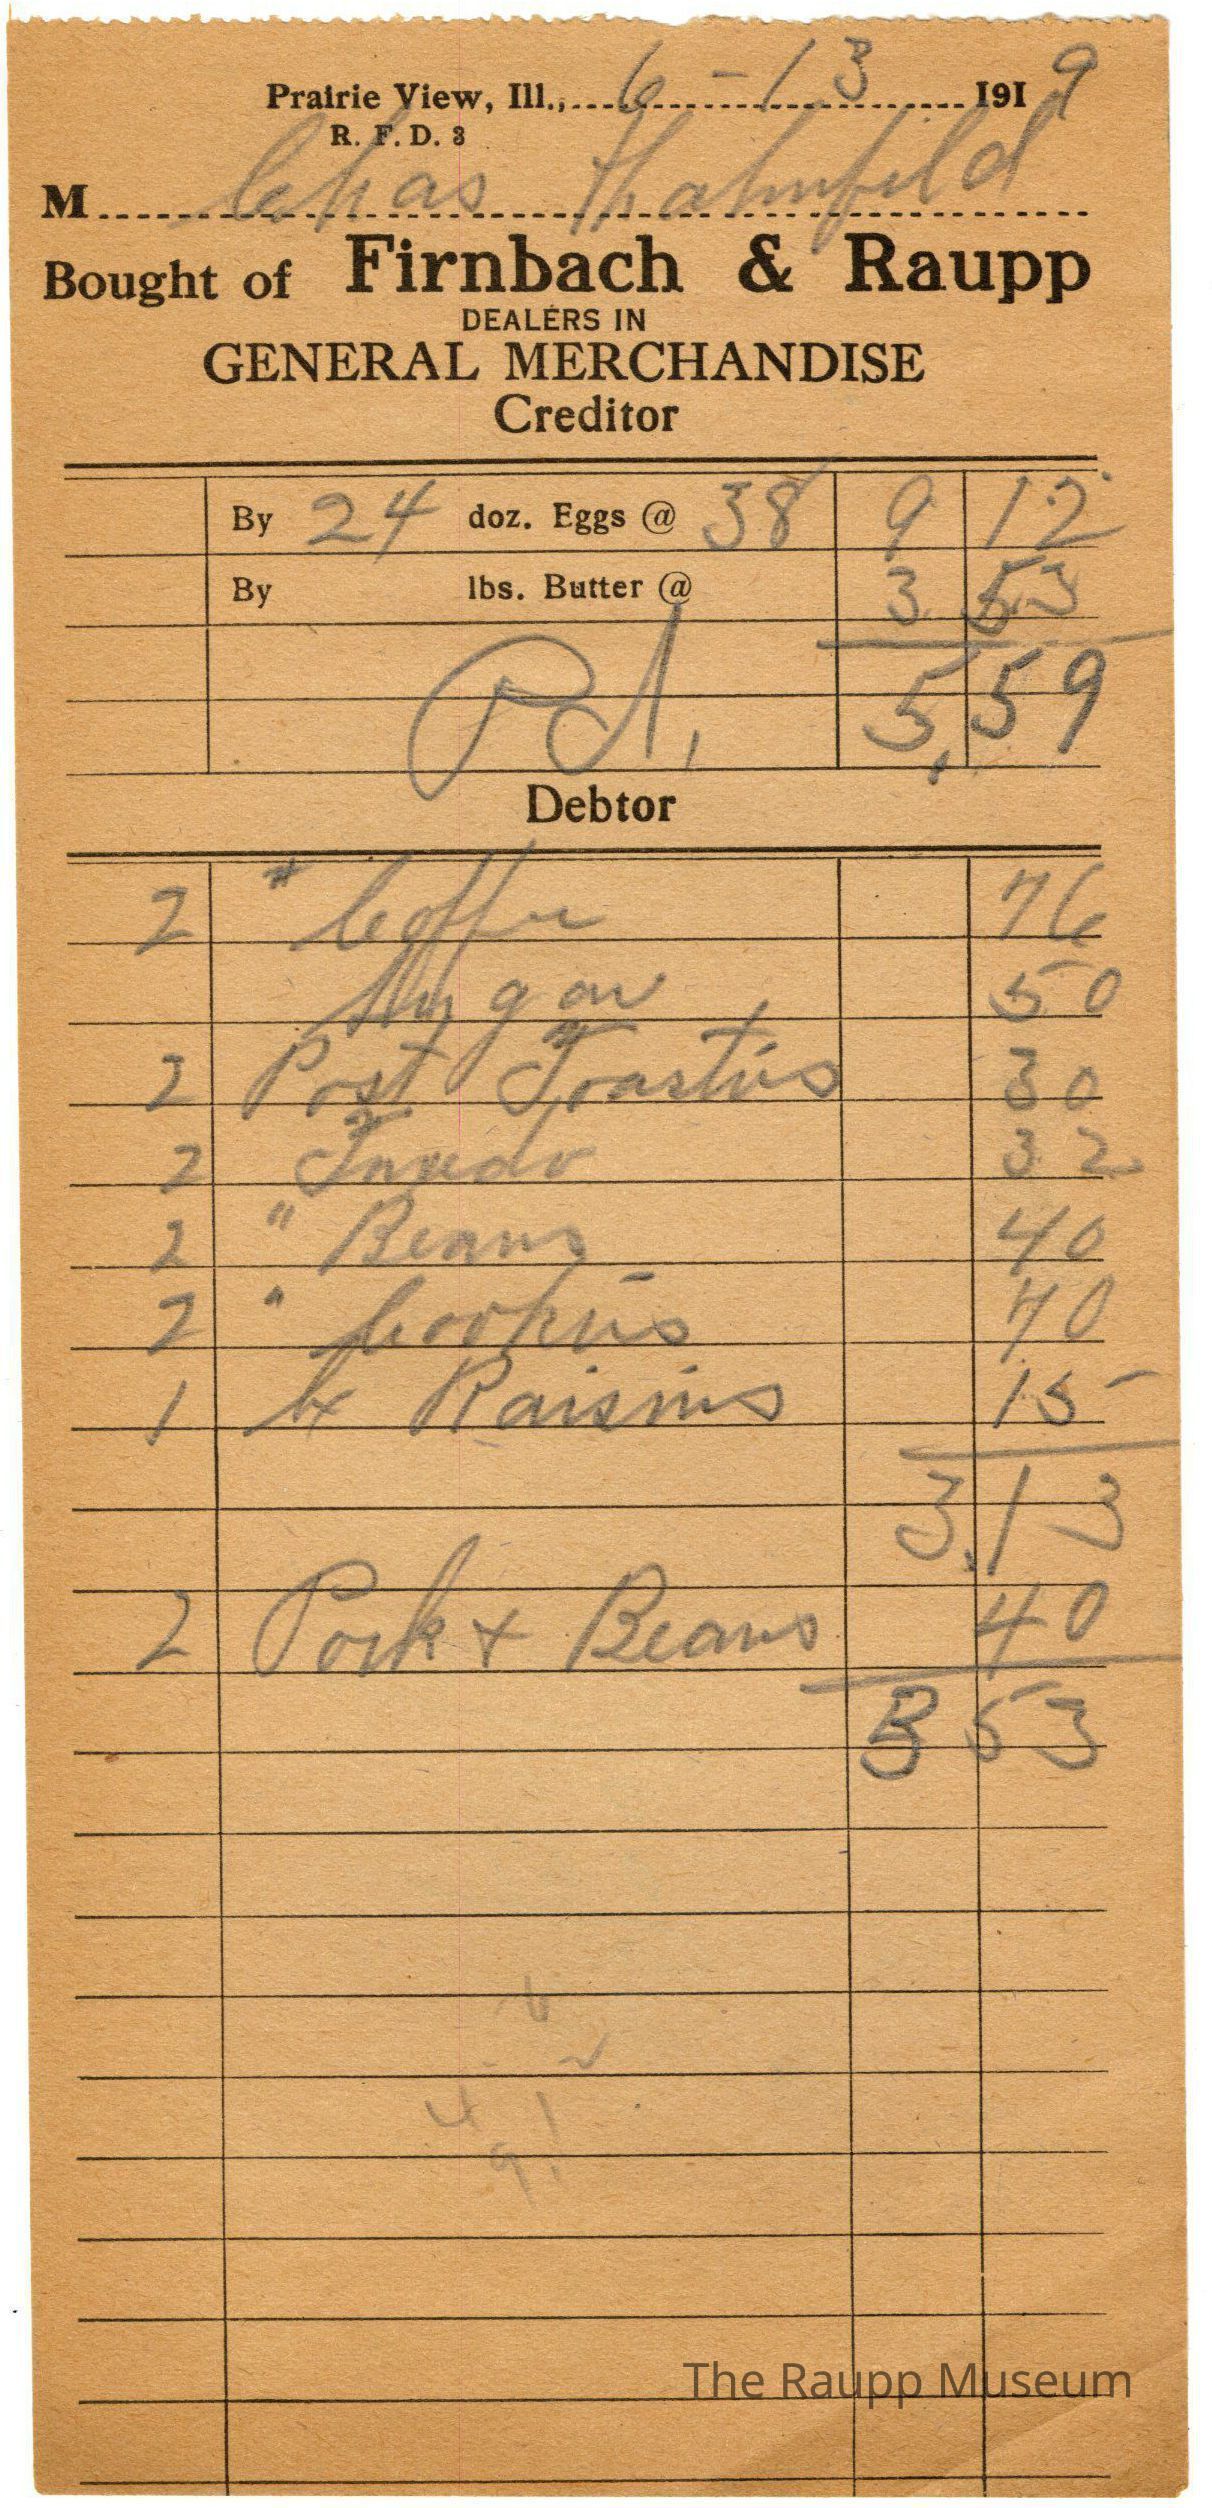 Prairie View, Ill., 6-13 1919
R. F. D. 3
M Chas Thalnfeld
Bought of Firnbach & Raupp
DEALERS IN
GENERAL MERCHANDISE
Creditor
By 24 doz. Eggs @ 38 9 12
By lbs. Butter @ 3 53
Pd, 5,59
Debtor
2 # Coffee 76
Sugar 50
2 Post Toasties 30
2 32
2 " Beans 40
2 " Cookies 70
1 bx Raisins 15
3.13
2 Pork + Beans 40
3 53
The Raupp Museum